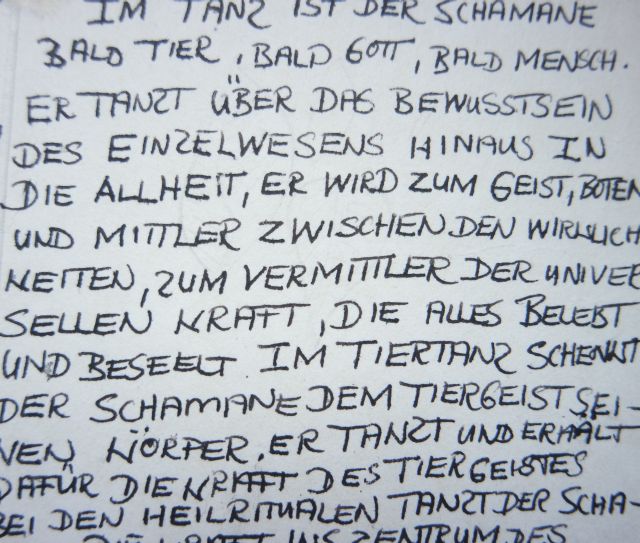 IM TANZ IST DER SCHAMANE
BALD TIER, BALD GOTT, BALD MENSCH.
ER TANZT ÜBER DAS BEWUSSTSEIN
DES EINZELWESENS HINAUS IN
DIE ALLHEIT, ER WIRD ZUM GEIST, BOTEN
UND MITTLER ZWISCHEN DEN WIRKLICH
KEITEN, ZUM VERMITTLER DER UNIVER
SELLEN KRAFT, DIE ALLES BELEBT
UND BESEELT. IM TIERTANZ SCHENKT
DER SCHAMANE DEM TIERGEIST SEI-
NEN KÖRPER. ER TANZT UND ERHÄLT
DAFÜR DIE KRAFT DES TIERGEISTES
BEI DEN HEILRITUALEN TANZT DER SCHA-
DIE KRAFT INS ZENTRUM DES